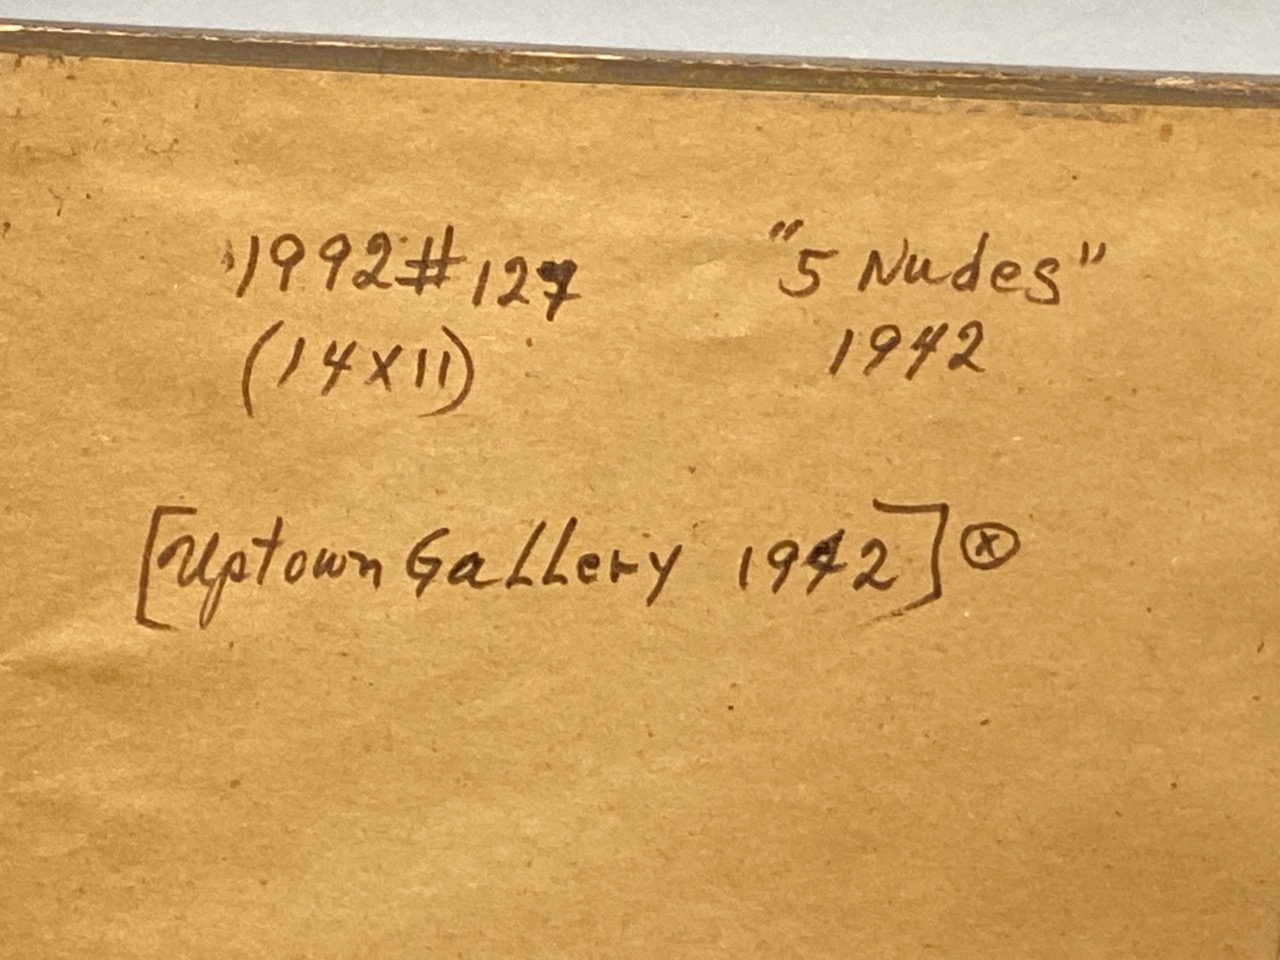 1992 # 127 "5 Nudes"
(14 x 11) 1942
[Uptown Gallery 1942] ⓧ